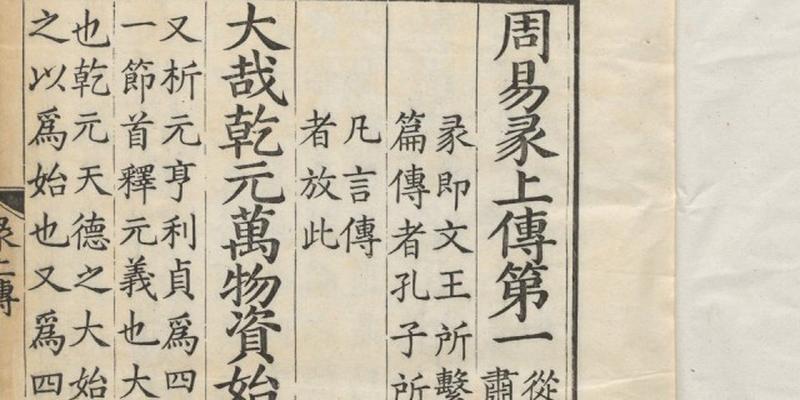 周易彖上傳第一
從
肅
彖即文王所繫
篇傳者孔子所
凡言傳
者放此
大哉乾元萬物資始
又析元亨利貞爲四
一節首釋元義也大
也乾元天德之大始
之以爲始也又爲四
彖上傳